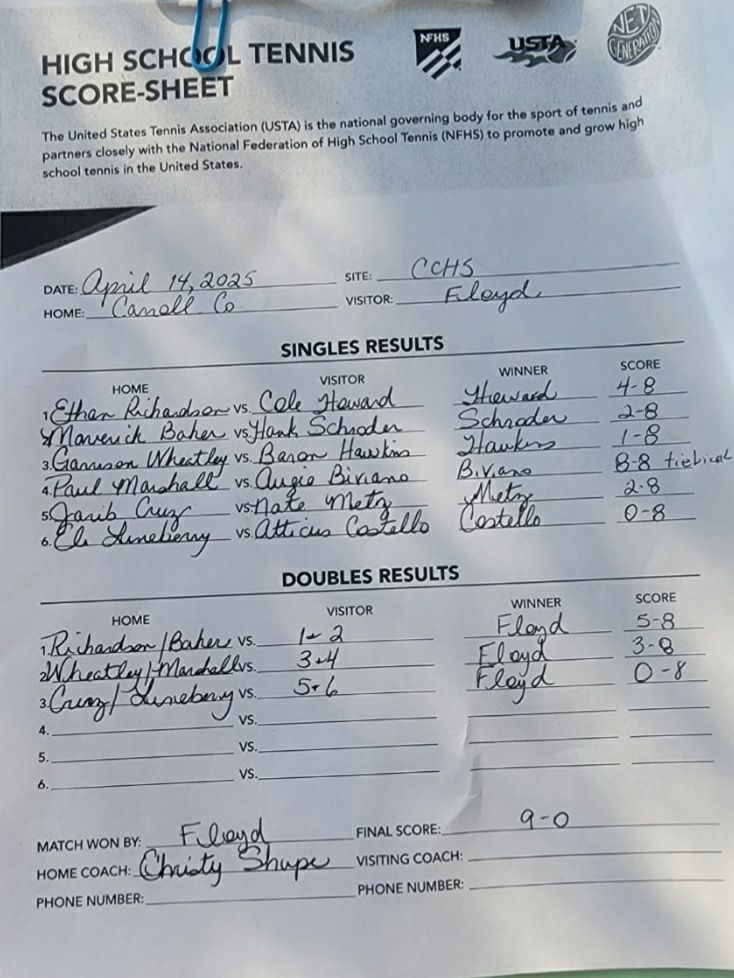 HIGH SCHOOL TENNIS
SCORE-SHEET
NFHS
USTA
NET GENERATION
The United States Tennis Association (USTA) is the national governing body for the sport of tennis and
partners closely with the National Federation of High School Tennis (NFHS) to promote and grow high
school tennis in the United States.
DATE: April 14, 2025 SITE: CCHS
HOME: Carroll Co. VISITOR: Floyd
SINGLES RESULTS
HOME VISITOR WINNER SCORE
1. Ethan Richardson vs. Cole Howard Howard 4-8
2. Maverick Baker vs. Hank Schroder Schroder 2-8
3. Garrison Wheatley vs. Baron Hawkins Hawkins 1-8
4. Paul Marshall vs. Augie Biviano Biviano 8-8
5. Jarib Cruz vs. Nate Metz Metz 2-8
6. Eli Lineberry vs. Atticus Costello Costello 0-8
DOUBLES RESULTS
HOME VISITOR WINNER SCORE
1. Richardson/Baker vs. 1+2 Floyd 5-8
2. Wheatley/Marshall vs. 3+4 Floyd 3-8
3. Cruz/Lineberry vs. 5+6 Floyd 0-8
4. VS.
5. VS.
6. VS.
MATCH WON BY: Floyd FINAL SCORE: 9-0
HOME COACH: Christy Shupe VISITING COACH:
PHONE NUMBER: PHONE NUMBER: